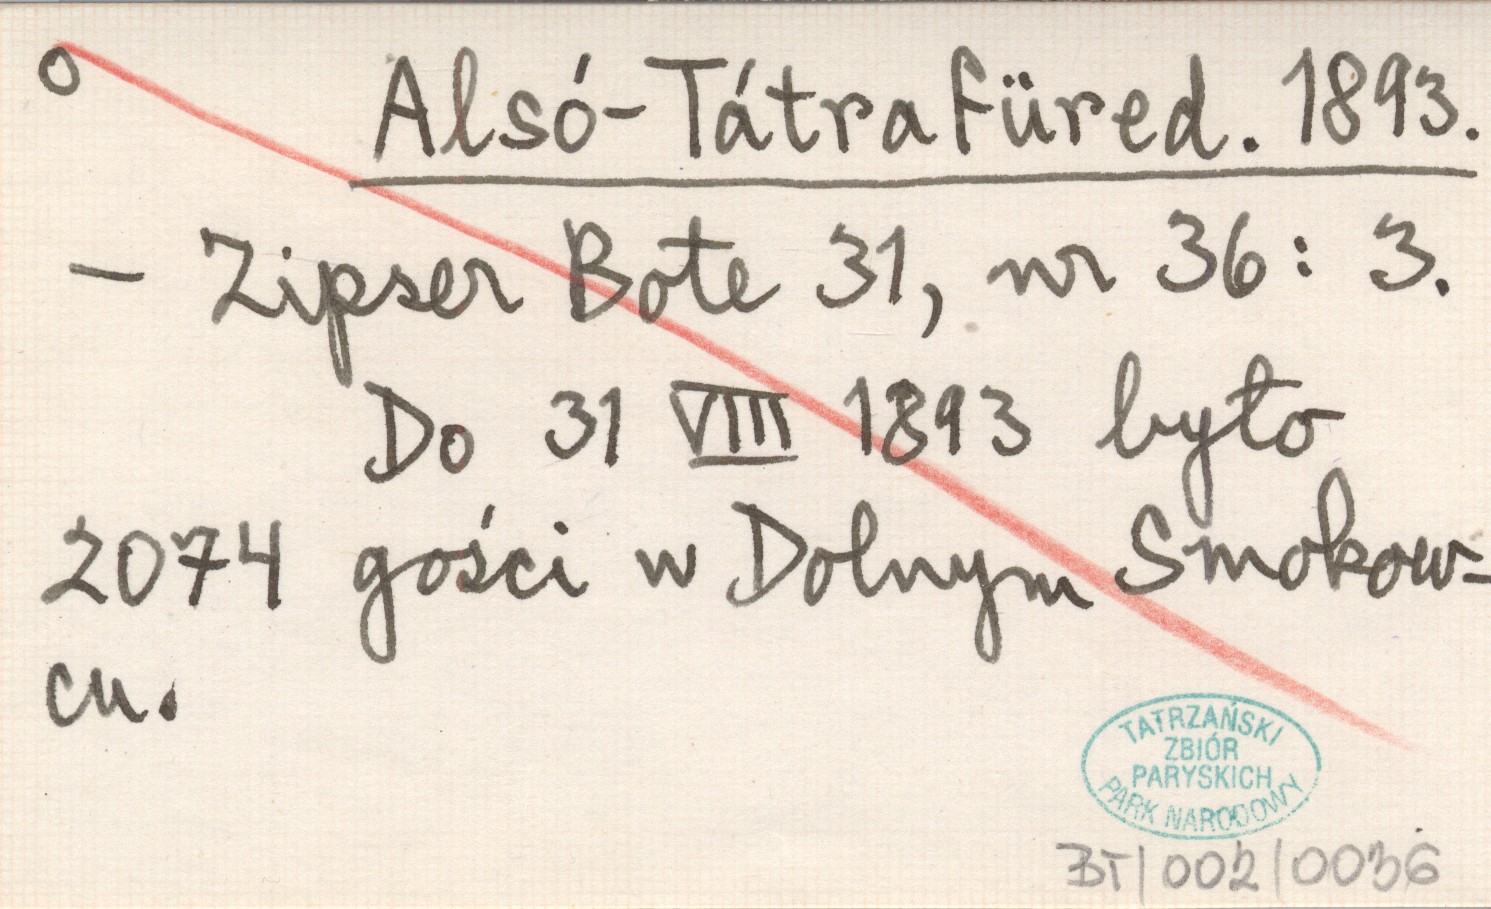 o Alsó-Tátrafüred. 1893.
— Zipser Bote 31, nr 36: 3.
Do 31 VIII 1893 było
2074 gości w Dolnym Smokow=
cu.
TATRZAŃSKI
ZBIÓR
PARYSKICH
PARK NARODOWY
BT/002/0036